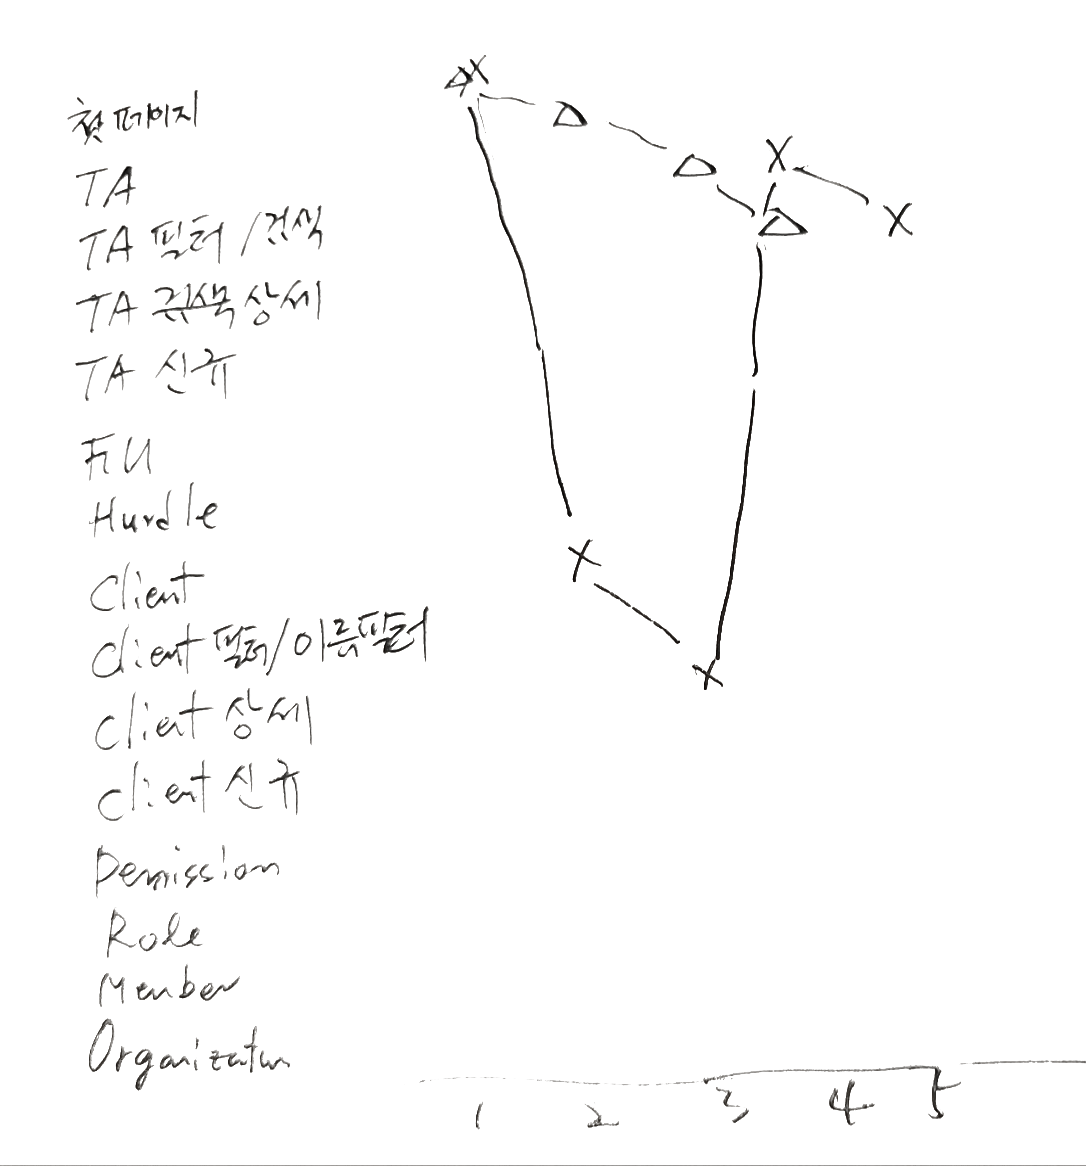 첫페이지
TA
TA 필터 / 검색
TA 상세
TA 신규
FU
Hurdle
Client
Client 필터/이름필터
Client 상세
Client 신규
Permission
Role
Member
Organization
1 2 3 4 5